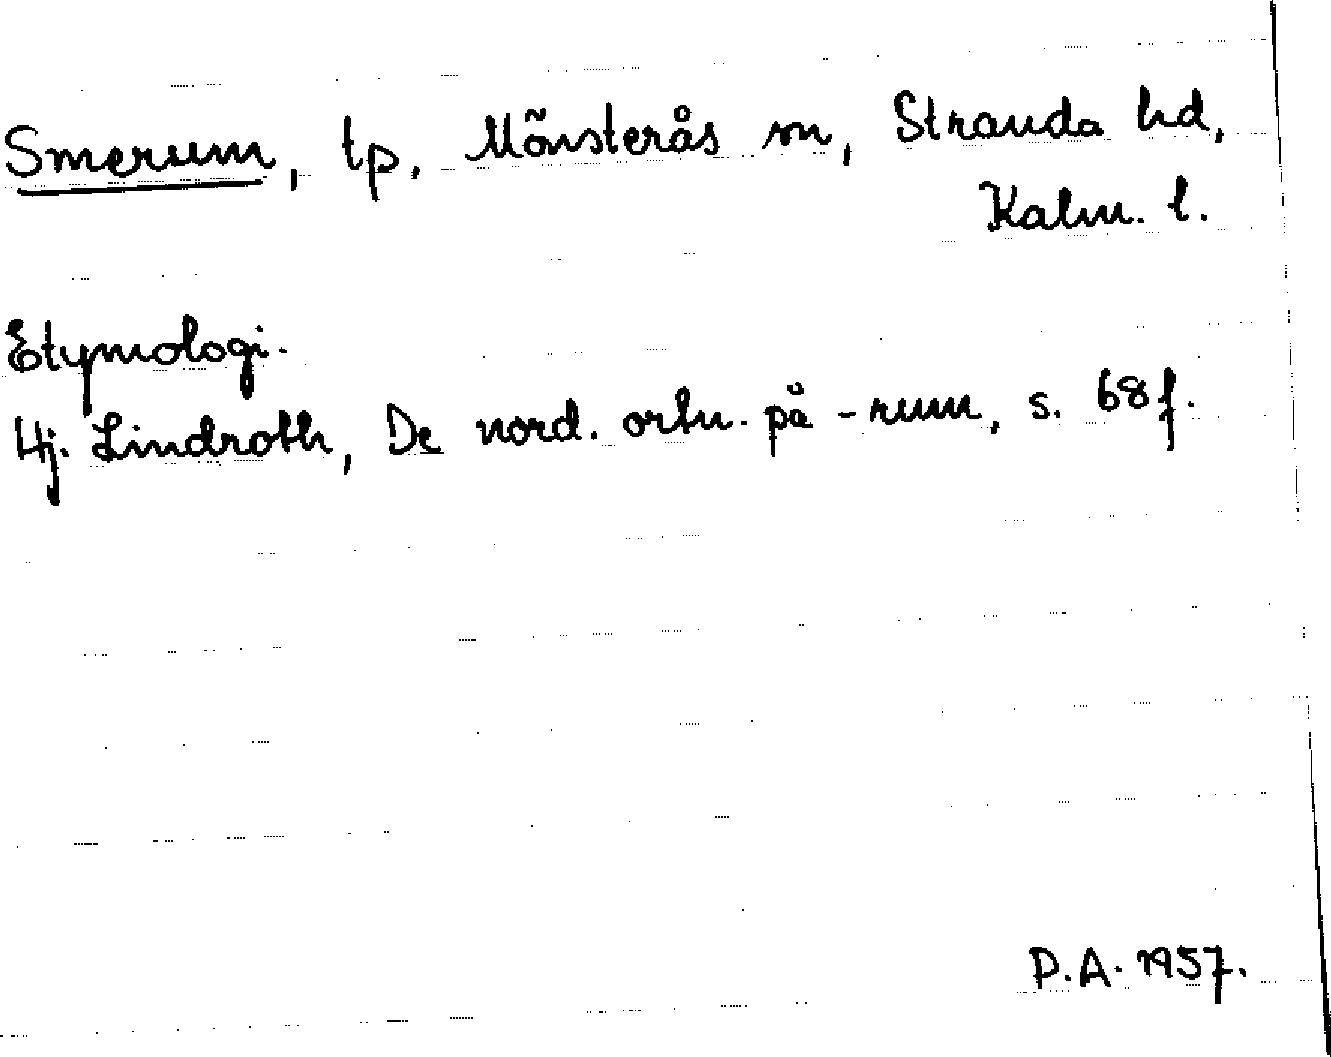 Smerum, tp, Mönsterås sn, Stranda hd,
Kalm. l.
Etymologi.
Hj. Lindroth, De nord. ortn. på -rum, s. 68 f.
P.A. 1957.